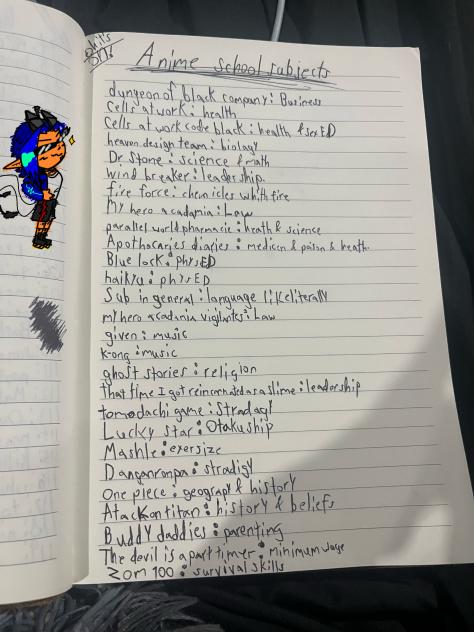 Anime school subjects
dungeon of black company: Business
Cells at work: health
Cells at work code black: health & sex ED
heaven design team: biology
Dr Stone: science & math
wind breaker: leadership.
fire force: chemicles whith fire
My hero acadamia: Law
parallel world pharmacie: heath & science
Apothacaries diaries: medicen & poison & heath.
Blue lock: phys ED
haikyu: phys ED
Sub in general: language like literally
my hero acadamia vigilantes: Law
given: music
K-ong: music
ghost stories: religion
That time I got reincarnated as a slime: leadership
tomodachi game: Stradagy
Lucky star: Otakuship
Mashle: exersize
Danganronpa: stradigy
One piece: geography & history
Atack on titan: history & beliefs
Buddy daddies: parenting
The devil is a part timer: minimum wage
Zom 100: survival skills